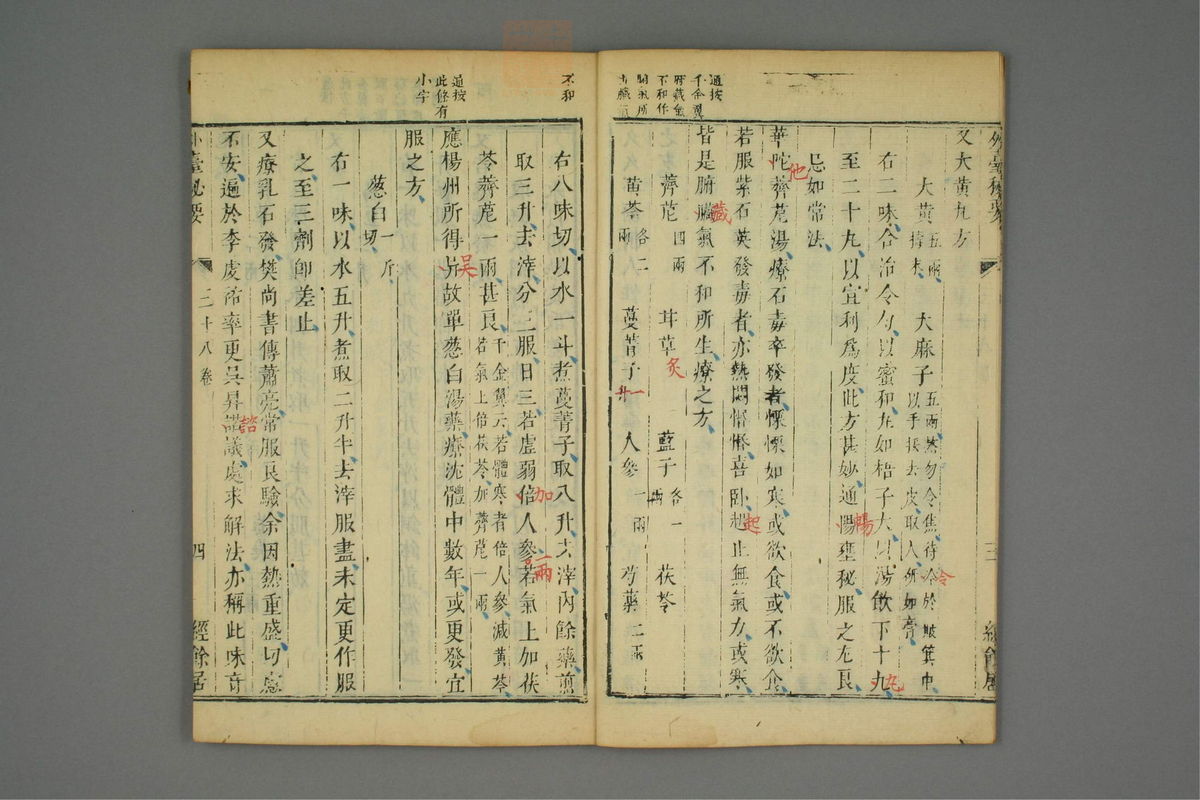 外臺秘要
三
經餘居
又大黃丸方
大黃五兩擣末 大麻子五兩熬勿令焦待冷於簸箕中以手挼去皮取人研如膏
右二味合治令勻以蜜和丸如梧子大以湯飲下十丸
至二十丸以宜利爲度此方甚妙通腸壅秘服之尤良
忌如常法
華陀薺苨湯療石毒卒發者慄慄如寒或欲食或不欲食
若服紫石英發毒者亦熱悶惛惛喜卧起止無氣力或寒
皆是腑臟氣不和所生療之方
薺苨四兩 甘草炙 藍子各一兩 茯苓
黃芩各二兩 蔓菁子一升 人參一兩 芍藥二兩
通按
千金翼
府藏金
不和作
不和
他
藏
起
暢
冷
丸
右八味切以水一斗煮蔓菁子取八升去滓內餘藥煎
取三升去滓分三服日三若虛弱倍人參若氣上加茯
苓薺苨一兩甚良千金翼云若體寒者倍人參減黃芩若氣上倍茯苓加薺苨一兩
應楊州所得吳故單葱白湯藥療沈體中數年或更發宜
服之方
葱白一斤切
右一味以水五升煮取二升半去滓服盡未定更作服
之至三劑即差止
又療乳石發樊尚書傳蕭亮常服良驗余因熱重盛切慮
不安遍於李處帝率更吳昇諮議處求解法亦稱此味奇
通按
此條有
小字
加
二兩
吳
諮
外臺秘要
三十八卷
四
經餘居